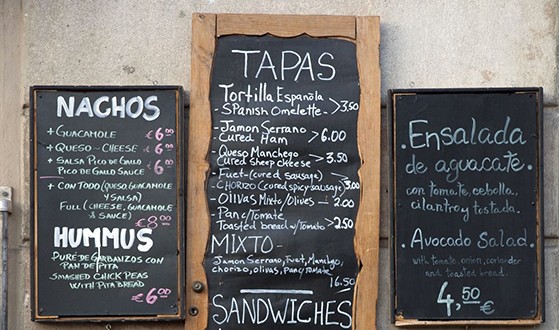 NACHOS
+ GUACAMOLE € 6.00
+ QUESO ~ CHEESE € 6.00
+ SALSA PICO de GALLO
PICO DE GALLO SAUCE € 6.00
+ CON TODO (QUESO, GUACAMOLE
Y SALSA)
FULL (CHEESE, GUACAMOLE
& SAUCE)
€ 8.00
HUMMUS
PURÉ DE GARBANZOS CON
PAN DE PITA
SMASHED CHICK PEAS
WITH PITA BREAD
€ 6.00
TAPAS
- Tortilla Española
- SPanish Omelette - > 3.50
- Jamon Serrano
Cured Ham > 6.00
- Queso Manchego
Cured sheep cheese > 3.50
- Fuet - (cured sausage)
- CHORIZO (cored spicy sausage) 3.00
- Olivas Mixto / Olives - 2.00
- Pan c/tomate
Toasted bread w/tomato > 2.50
MIXTO -
Jamon Serrano, Fuet, Manchego,
chorizo, olivas, pan c/tomate
16.50
SANDWICHES
. Ensalada
de aguacate.
con tomate, cebolla,
cilantro y tostada.
. Avocado Salad.
with tomato, onion, coriander
and toasted bread.
4,50 €